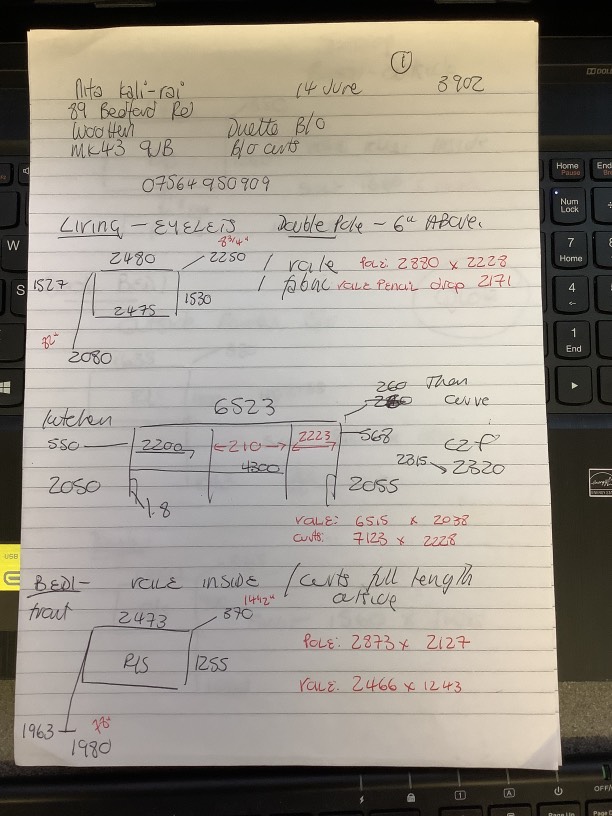 1
Nita Kali-rai 14 June 3902
89 Bedford Rd
Wootten Duette B/O
MK43 9JB B/o curts
07564950909
Living - EYELETS Double Pole - 6" ABOVE.
8 3/4"
2480 2250 / vale Pole: 2880 x 2228
1527 / fabric vale Pencil drop 2171
2475 1530
82"
2080
260 Then
Kitchen 6523 curve
550 2200 210 2223 568 CZF
4300 2315 2320
2050 2055
1.8
VALE: 6515 x 2038
CURTS: 7123 x 2228
BED1 - vale inside / curts full length
front 14 1/2" outside
2473 370
Pole: 2873 x 2127
P/S 1255
VALE: 2466 x 1243
1963 78"
1980
W
S
Home
Pause
End
Num
Lock
7
Home
4
1
End
USB
ENERGY STAR
A